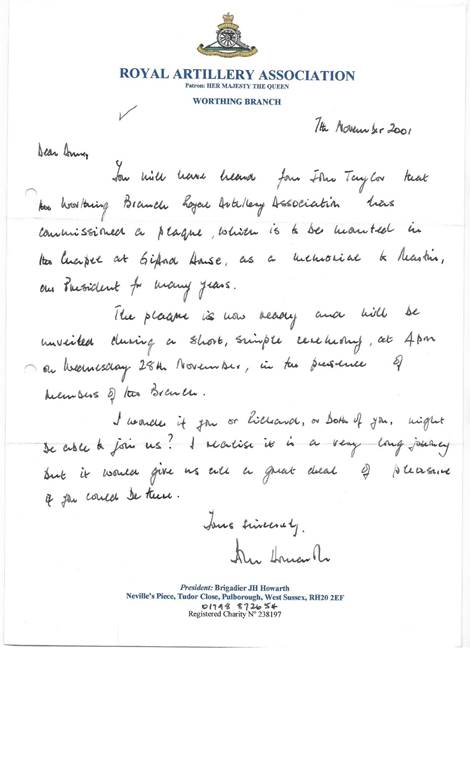 ROYAL ARTILLERY ASSOCIATION
Patron: HER MAJESTY THE QUEEN
WORTHING BRANCH
7th November 2001
Dear Anne,
You will have heard from John Taylor that
the Worthing Branch Royal Artillery Association has
commissioned a plaque, which is to be mounted in
the Chapel at Gifford House, as a memorial to Martin,
our President for many years.
The plaque is now ready and will be
unveiled during a short, simple ceremony, at 4pm
on Wednesday 28th November, in the presence of
members of the Branch.
I wonder if you or Richard, or both of you, might
be able to join us? I realise it is a very long journey
but it would give us all a great deal of pleasure
if you could be there.
Yours sincerely,
John Howarth
President: Brigadier JH Howarth
Neville's Piece, Tudor Close, Pulborough, West Sussex, RH20 2EF
01798 872654
Registered Charity N° 238197